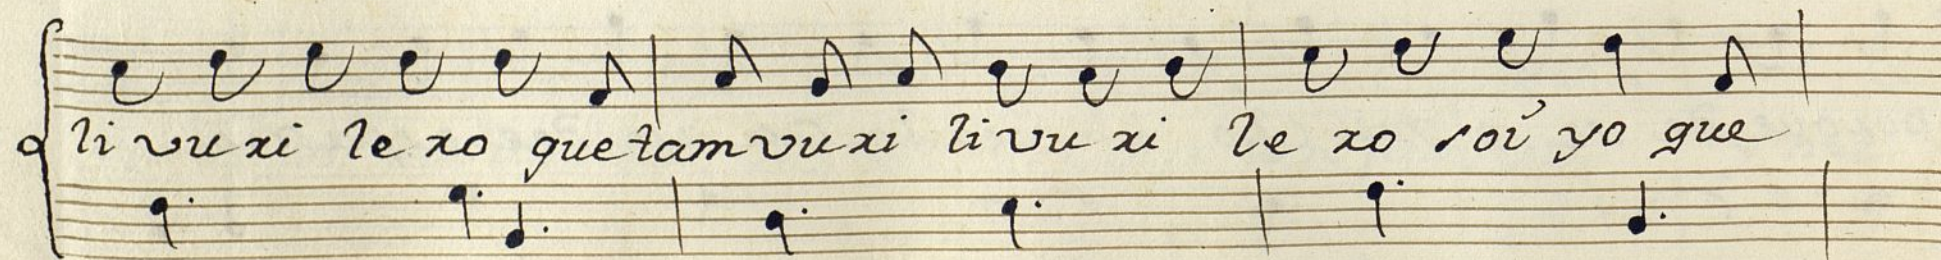 li vu ri le ro que tam vu ri li vu ri le ro soi yo que